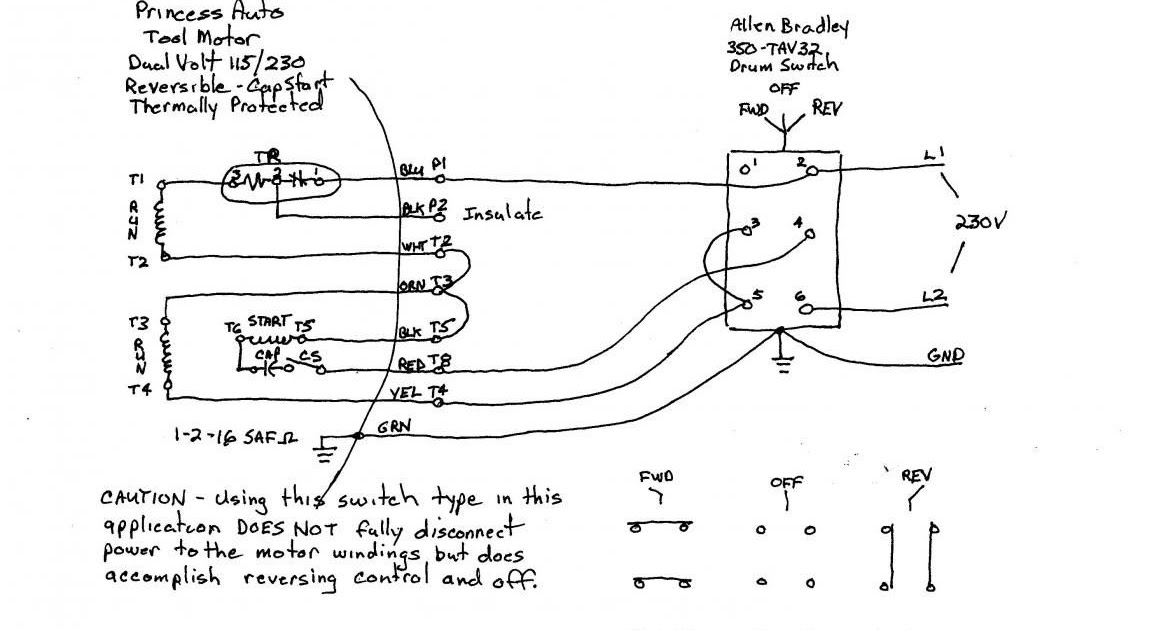 Princess Auto
Tool Motor
Dual Volt 115/230
Reversible - Cap Start
Thermally Protected
Allen Bradley
350-TAV32
Drum Switch
OFF
FWD REV
TR
3 2 1
T1
RUN
T2
BLU P1
BLK P2 Insulate
WHT T2
ORN T3
T3
RUN
T4
T6 START T5
CAP CS
BLK T5
RED T8
YEL T4
GRN
1 2
3 4
5 6
L1
230V
L2
GND
1-2-16 SAFΩ
CAUTION - Using this switch type in this
application DOES NOT fully disconnect
power to the motor windings but does
accomplish reversing control and off.
FWD OFF REV